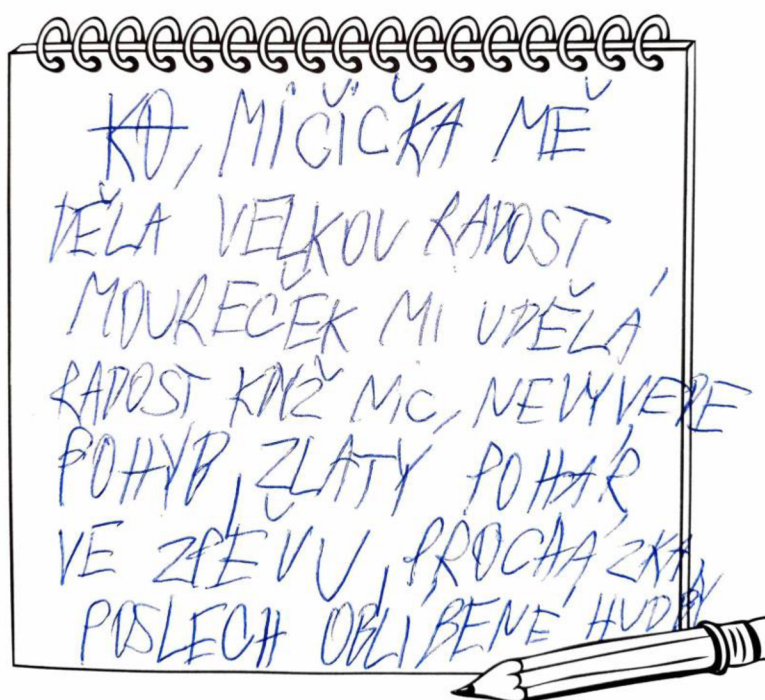 KO, MIČIČKA MĚ
DĚLA VELKOU RADOST
MOUREČEK MI UDĚLÁ
RADOST KDYŽ NIC, NEVYVEDE
POHYB, ZLATÝ POHÁR
VE ZPĚVU, PROCHÁZKA,
POSLECH OBLÍBENÉ HUDBY